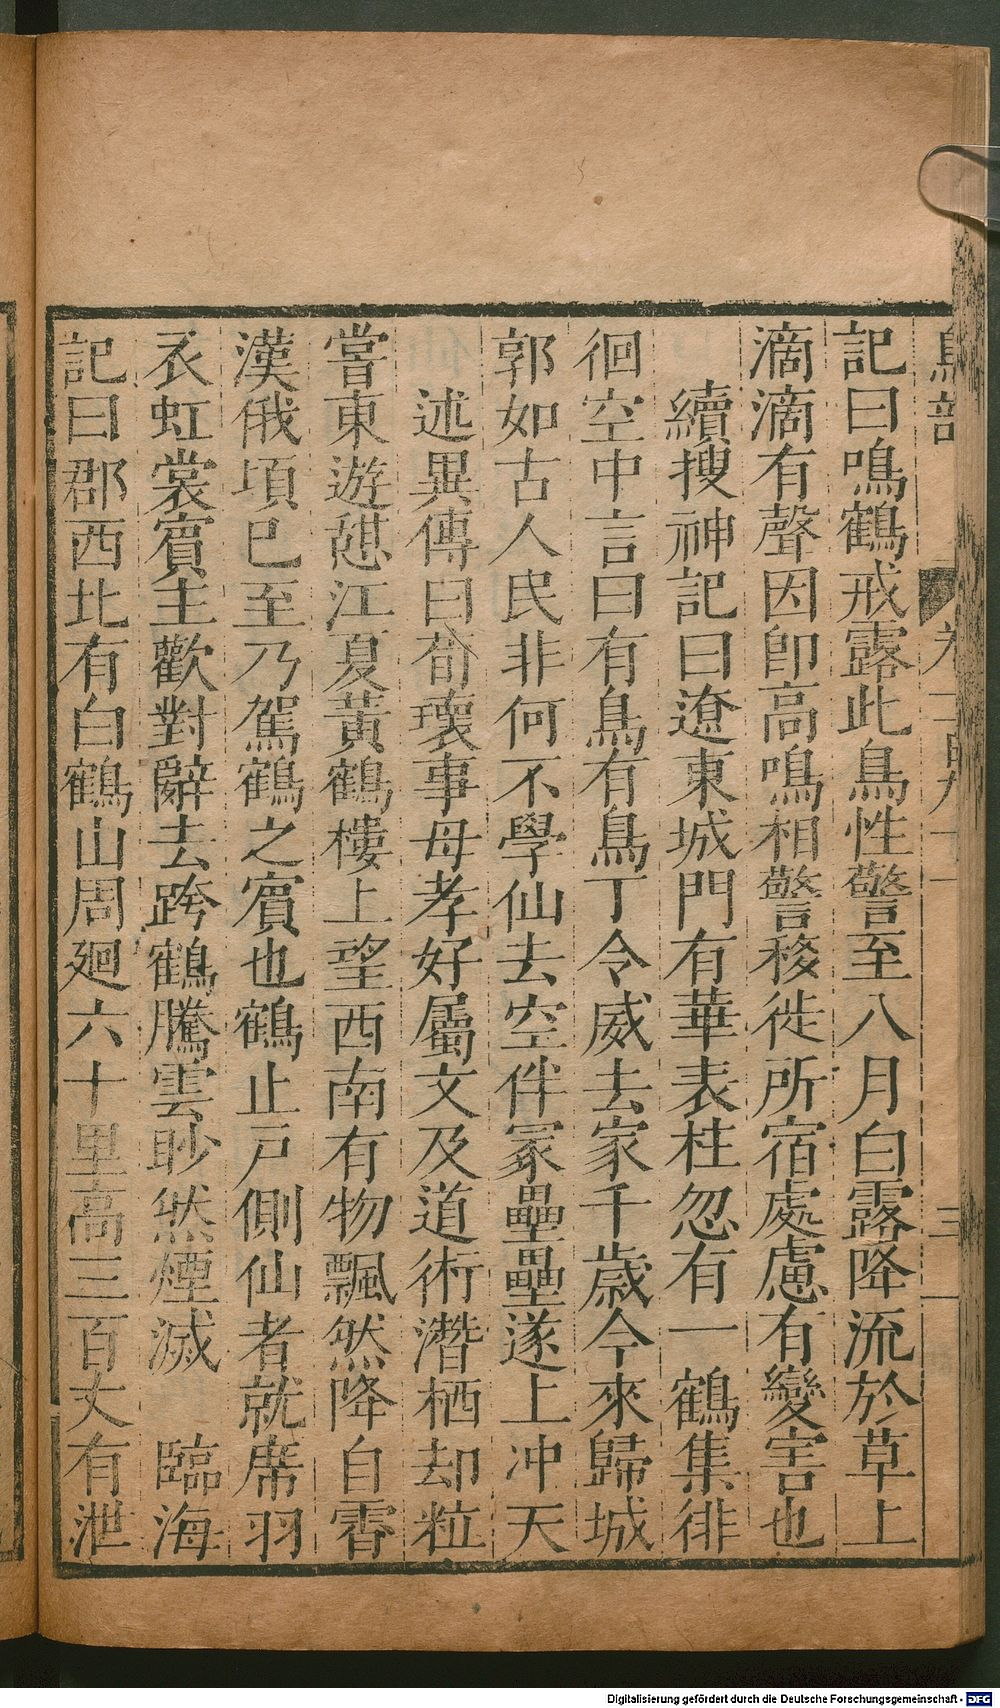 鳥部 卷一百九十 三
記曰鳴鶴戒露此鳥性警至八月白露降流於草上
滴滴有聲因卽高鳴相警移徙所宿處慮有變害也
續搜神記曰遼東城門有華表柱忽有一鶴集徘
徊空中言曰有鳥有鳥丁令威去家千歲今來歸城
郭如古人民非何不學仙去空伴冢壘壘遂上冲天
述異傳曰荀瓌事母孝好屬文及道術潛栖却粒
嘗東遊憇江夏黃鶴樓上望西南有物飄然降自霄
漢俄頃巳至乃駕鶴之賓也鶴止戸側仙者就席羽
衣虹裳賓主歡對辭去跨鶴騰雲眇然煙滅 臨海
記曰郡西北有白鶴山周廻六十里高三百丈有泄
Digitalisierung gefördert durch die Deutsche Forschungsgemeinschaft - DFG